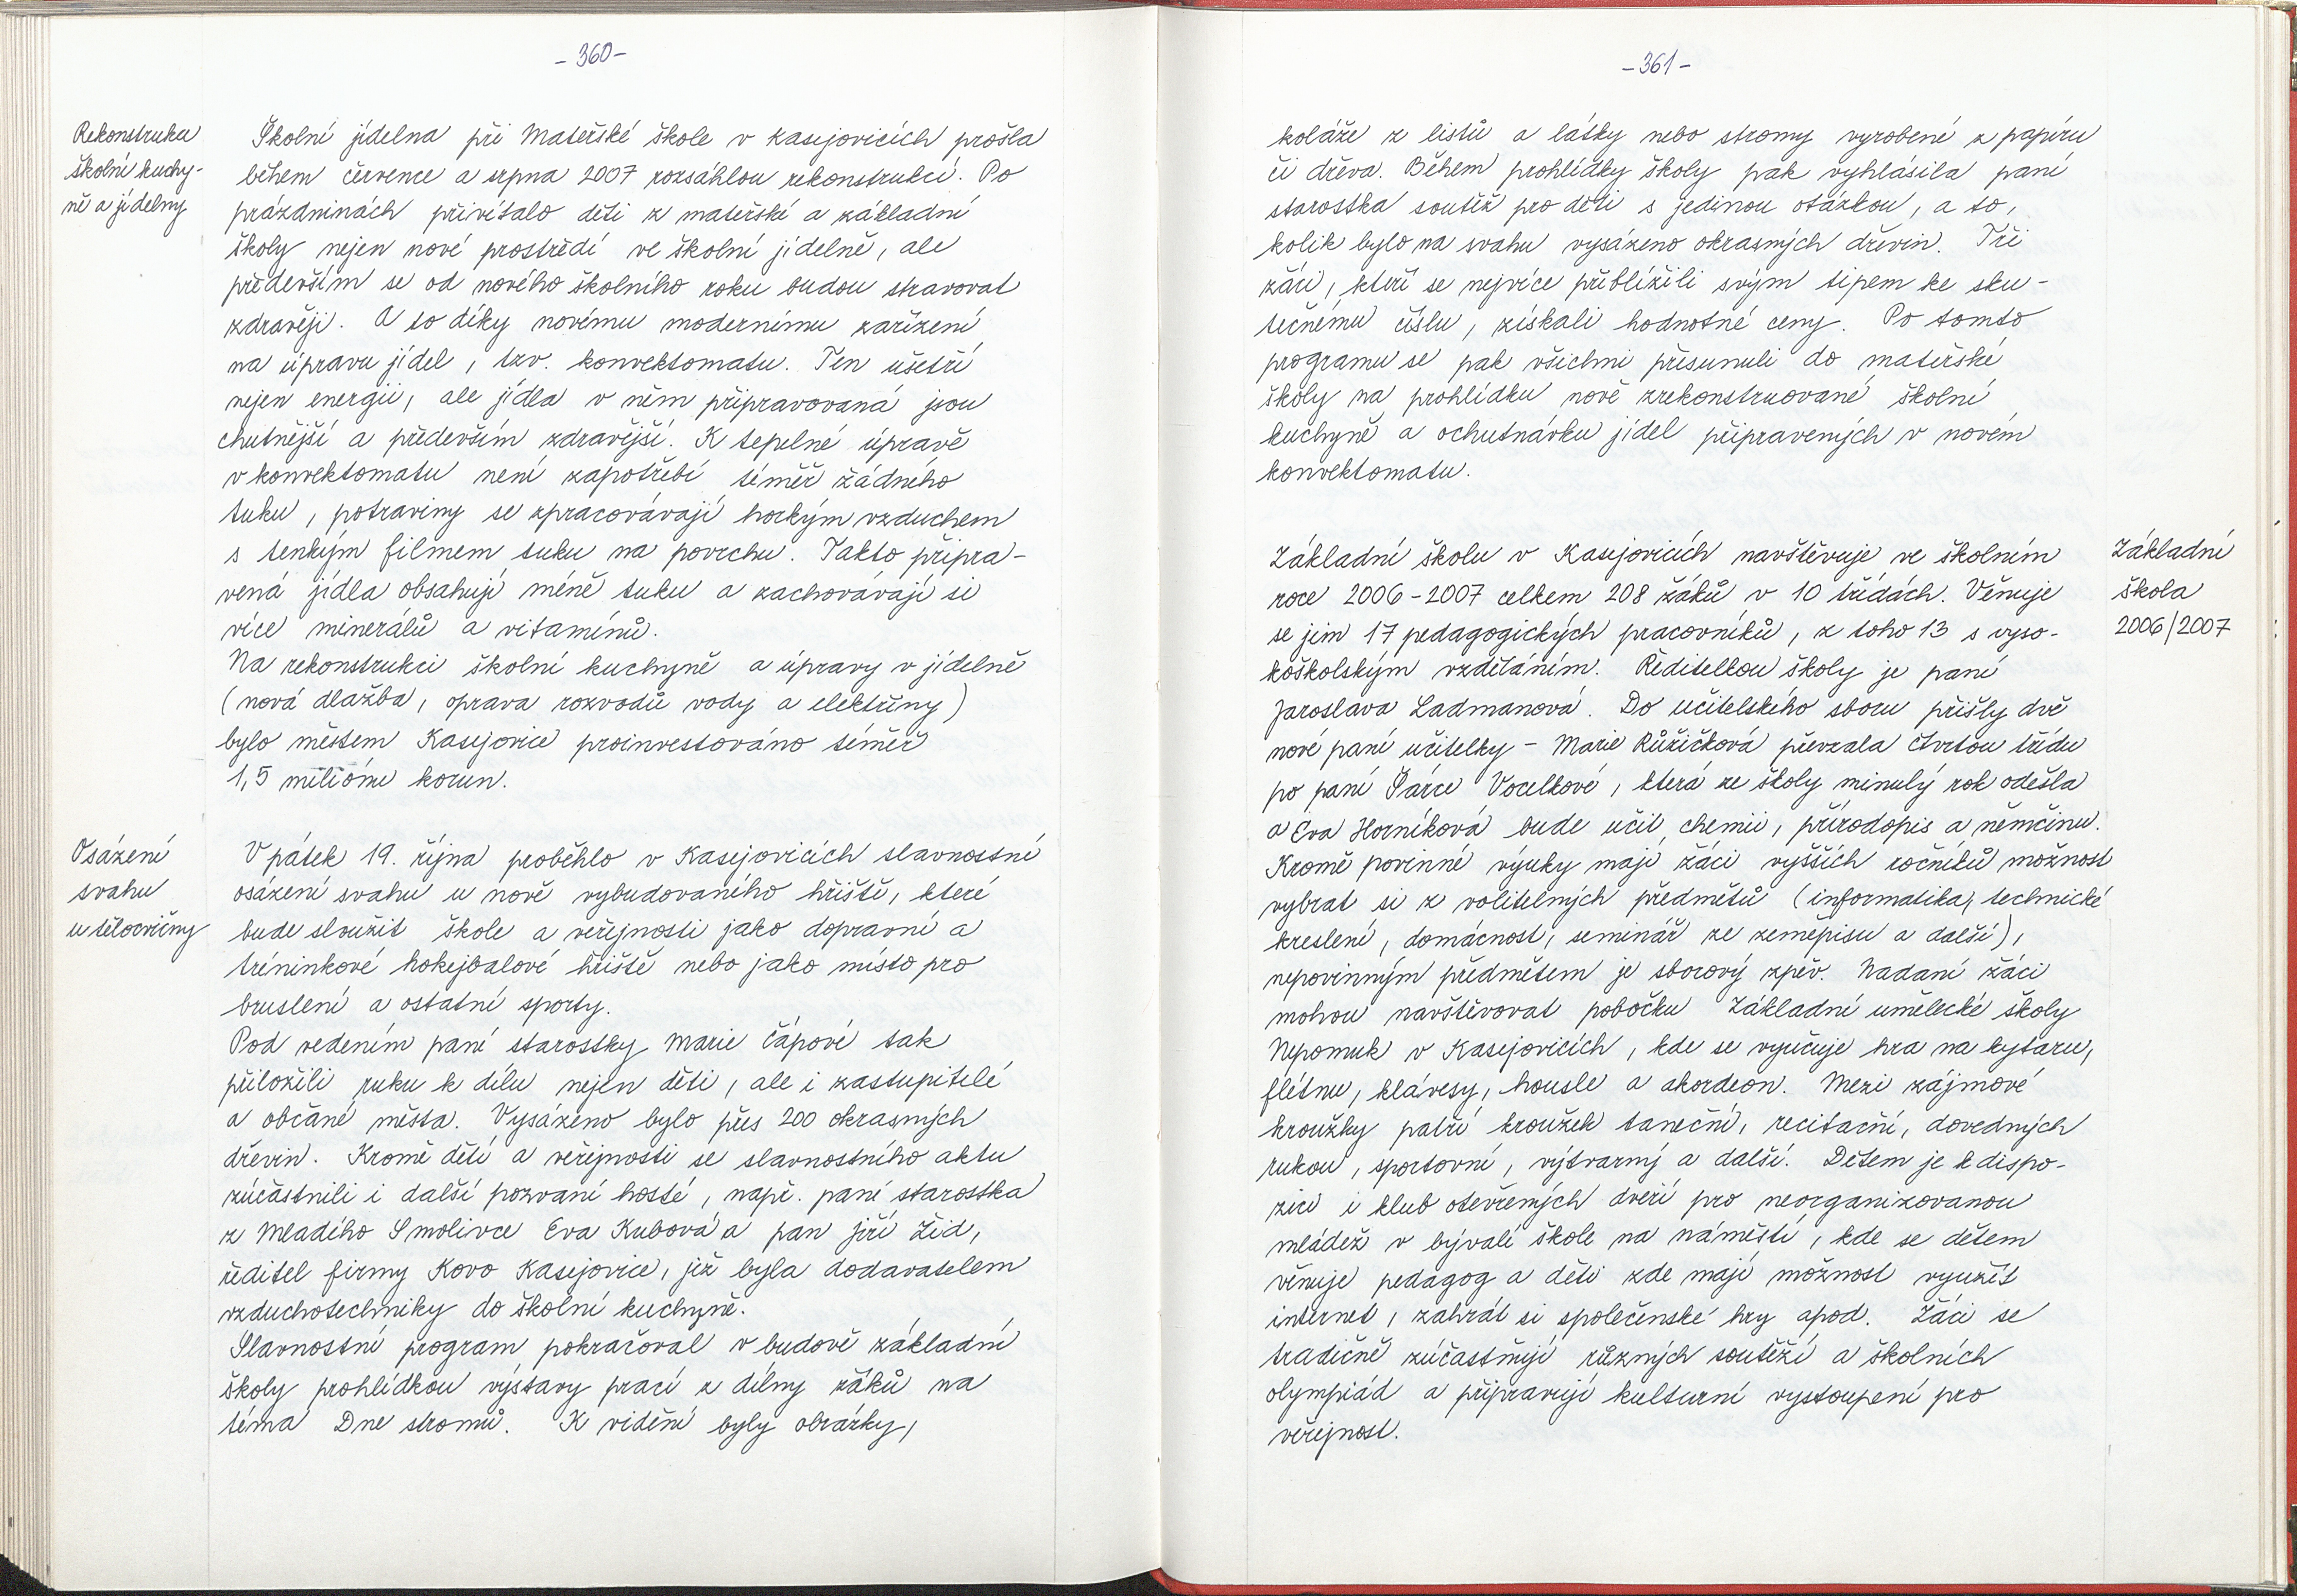 - 360 -
Rekonstrukce
školní kuchy-
ně a jídelny
Školní jídelna při Mateřské škole v Kasejovicích prošla
během července a srpna 2007 rozsáhlou rekonstrukcí. Po
prázdninách přivítalo děti z mateřské a základní
školy nejen nové prostředí ve školní jídelně, ale
především se od nového školního roku budou stravovat
zdravěji. A to díky novému modernímu zařízení
na úpravu jídel, tzv. konvektomatu. Ten ušetří
nejen energii, ale jídla v něm připravovaná jsou
chutnější a především zdravější. K tepelné úpravě
v konvektomatu není zapotřebí téměř žádného
tuku, potraviny se zpracovávají horkým vzduchem
s tenkým filmem tuku na povrchu. Takto připra-
vená jídla obsahují méně tuku a zachovávají si
více minerálů a vitamínů.
Na rekonstrukci školní kuchyně a úpravy v jídelně
(nová dlažba, oprava rozvodů vody a elektřiny)
bylo městem Kasejovice proinvestováno téměř
1,5 miliónu korun.
Osázení
svahu
u tělocvičny
V pátek 19. října proběhlo v Kasejovicích slavnostní
osázení svahu u nově vybudovaného hřiště, které
bude sloužit škole a veřejnosti jako dopravní a
tréninkové hokejbalové hřiště nebo jako místo pro
bruslení a ostatní sporty.
Pod vedením paní starostky Marie Čápové tak
přiložili ruku k dílu nejen děti, ale i zastupitelé
a občané města. Vysázeno bylo přes 200 okrasných
dřevin. Kromě dětí a veřejnosti se slavnostního aktu
zúčastnili i další pozvaní hosté, např. paní starostka
z Mladého Smolivce Eva Kubová a pan Jiří Žid,
ředitel firmy Kovo Kasejovice, jež byla dodavatelem
vzduchotechniky do školní kuchyně.
Slavnostní program pokračoval v budově základní
školy prohlídkou výstavy prací z dílny žáků na
téma Dne stromů. K vidění byly obrázky,
- 361 -
koláže z listů a látky nebo stromy vyrobené z papíru
či dřeva. Během prohlídky školy pak vyhlásila paní
starostka soutěž pro děti s jedinou otázkou, a to,
kolik bylo na svahu vysázeno okrasných dřevin. Tři
žáci, kteří se nejvíce přiblížili svým tipem ke sku-
tečnému číslu, získali hodnotné ceny. Po tomto
programu se pak všichni přesunuli do mateřské
školy na prohlídku nově zrekonstruované školní
kuchyně a ochutnávku jídel připravených v novém
konvektomatu.
Základní
škola
2006/2007
Základní školu v Kasejovicích navštěvuje ve školním
roce 2006-2007 celkem 208 žáků v 10 třídách. Věnuje
se jim 17 pedagogických pracovníků, z toho 13 s vyso-
koškolským vzděláním. Ředitelkou školy je paní
Jaroslava Ladmanová. Do učitelského sboru přišly dvě
nové paní učitelky - Marie Růžičková převzala čtvrtou třídu
po paní Šárce Vocelkové, která ze školy minulý rok odešla
a Eva Horníková bude učit chemii, přírodopis a němčinu.
Kromě povinné výuky mají žáci vyšších ročníků možnost
vybrat si z volitelných předmětů (informatika, technické
kreslení, domácnost, seminář ze zeměpisu a další),
nepovinným předmětem je sborový zpěv. Nadaní žáci
mohou navštěvovat pobočku Základní umělecké školy
Nepomuk v Kasejovicích, kde se vyučuje hra na kytaru,
flétnu, klávesy, housle a akordeon. Mezi zájmové
kroužky patří kroužek taneční, recitační, dovedných
rukou, sportovní, výtvarný a další. Dětem je k dispo-
zici i klub otevřených dveří pro neorganizovanou
mládež v bývalé škole na náměstí, kde se dětem
věnuje pedagog a děti zde mají možnost využít
internet, zahrát si společenské hry apod. Žáci se
tradičně zúčastňují různých soutěží a školních
olympiád a připravují kulturní vystoupení pro
veřejnost.